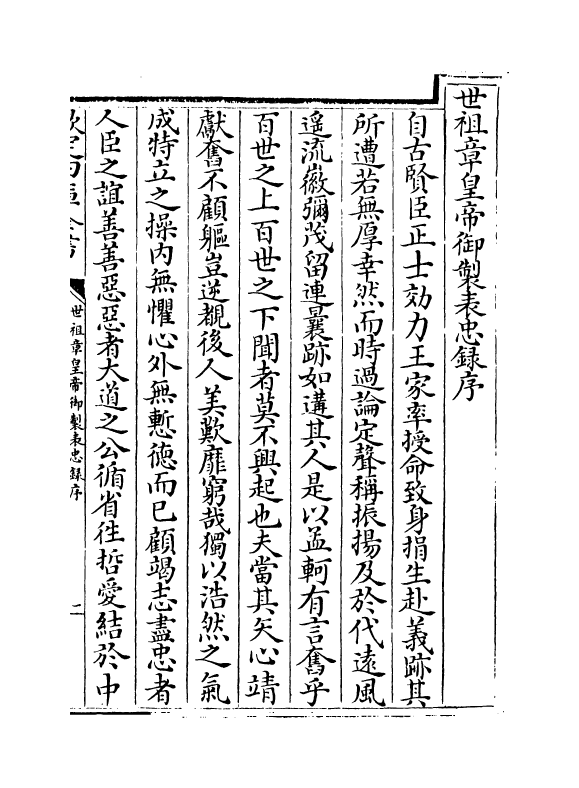 世祖章皇帝御製表忠録序
自古賢臣正士効力王家率授命致身捐生赴義跡其
所遭若無厚幸然而時過論定聲稱振揚及於代逺風
遥流徽彌茂留連曩跡如遘其人是以孟軻有言奮乎
百世之上百世之下聞者莫不興起也夫當其矢心靖
獻奮不顧軀豈逆覩後人美歎靡窮哉獨以浩然之氣
成特立之操内無懼心外無慙德而已顧竭志盡忠者
人臣之誼善善惡惡者大道之公循省徃哲愛結於中
欽定四庫全書
世祖章皇帝御製表忠録序
二